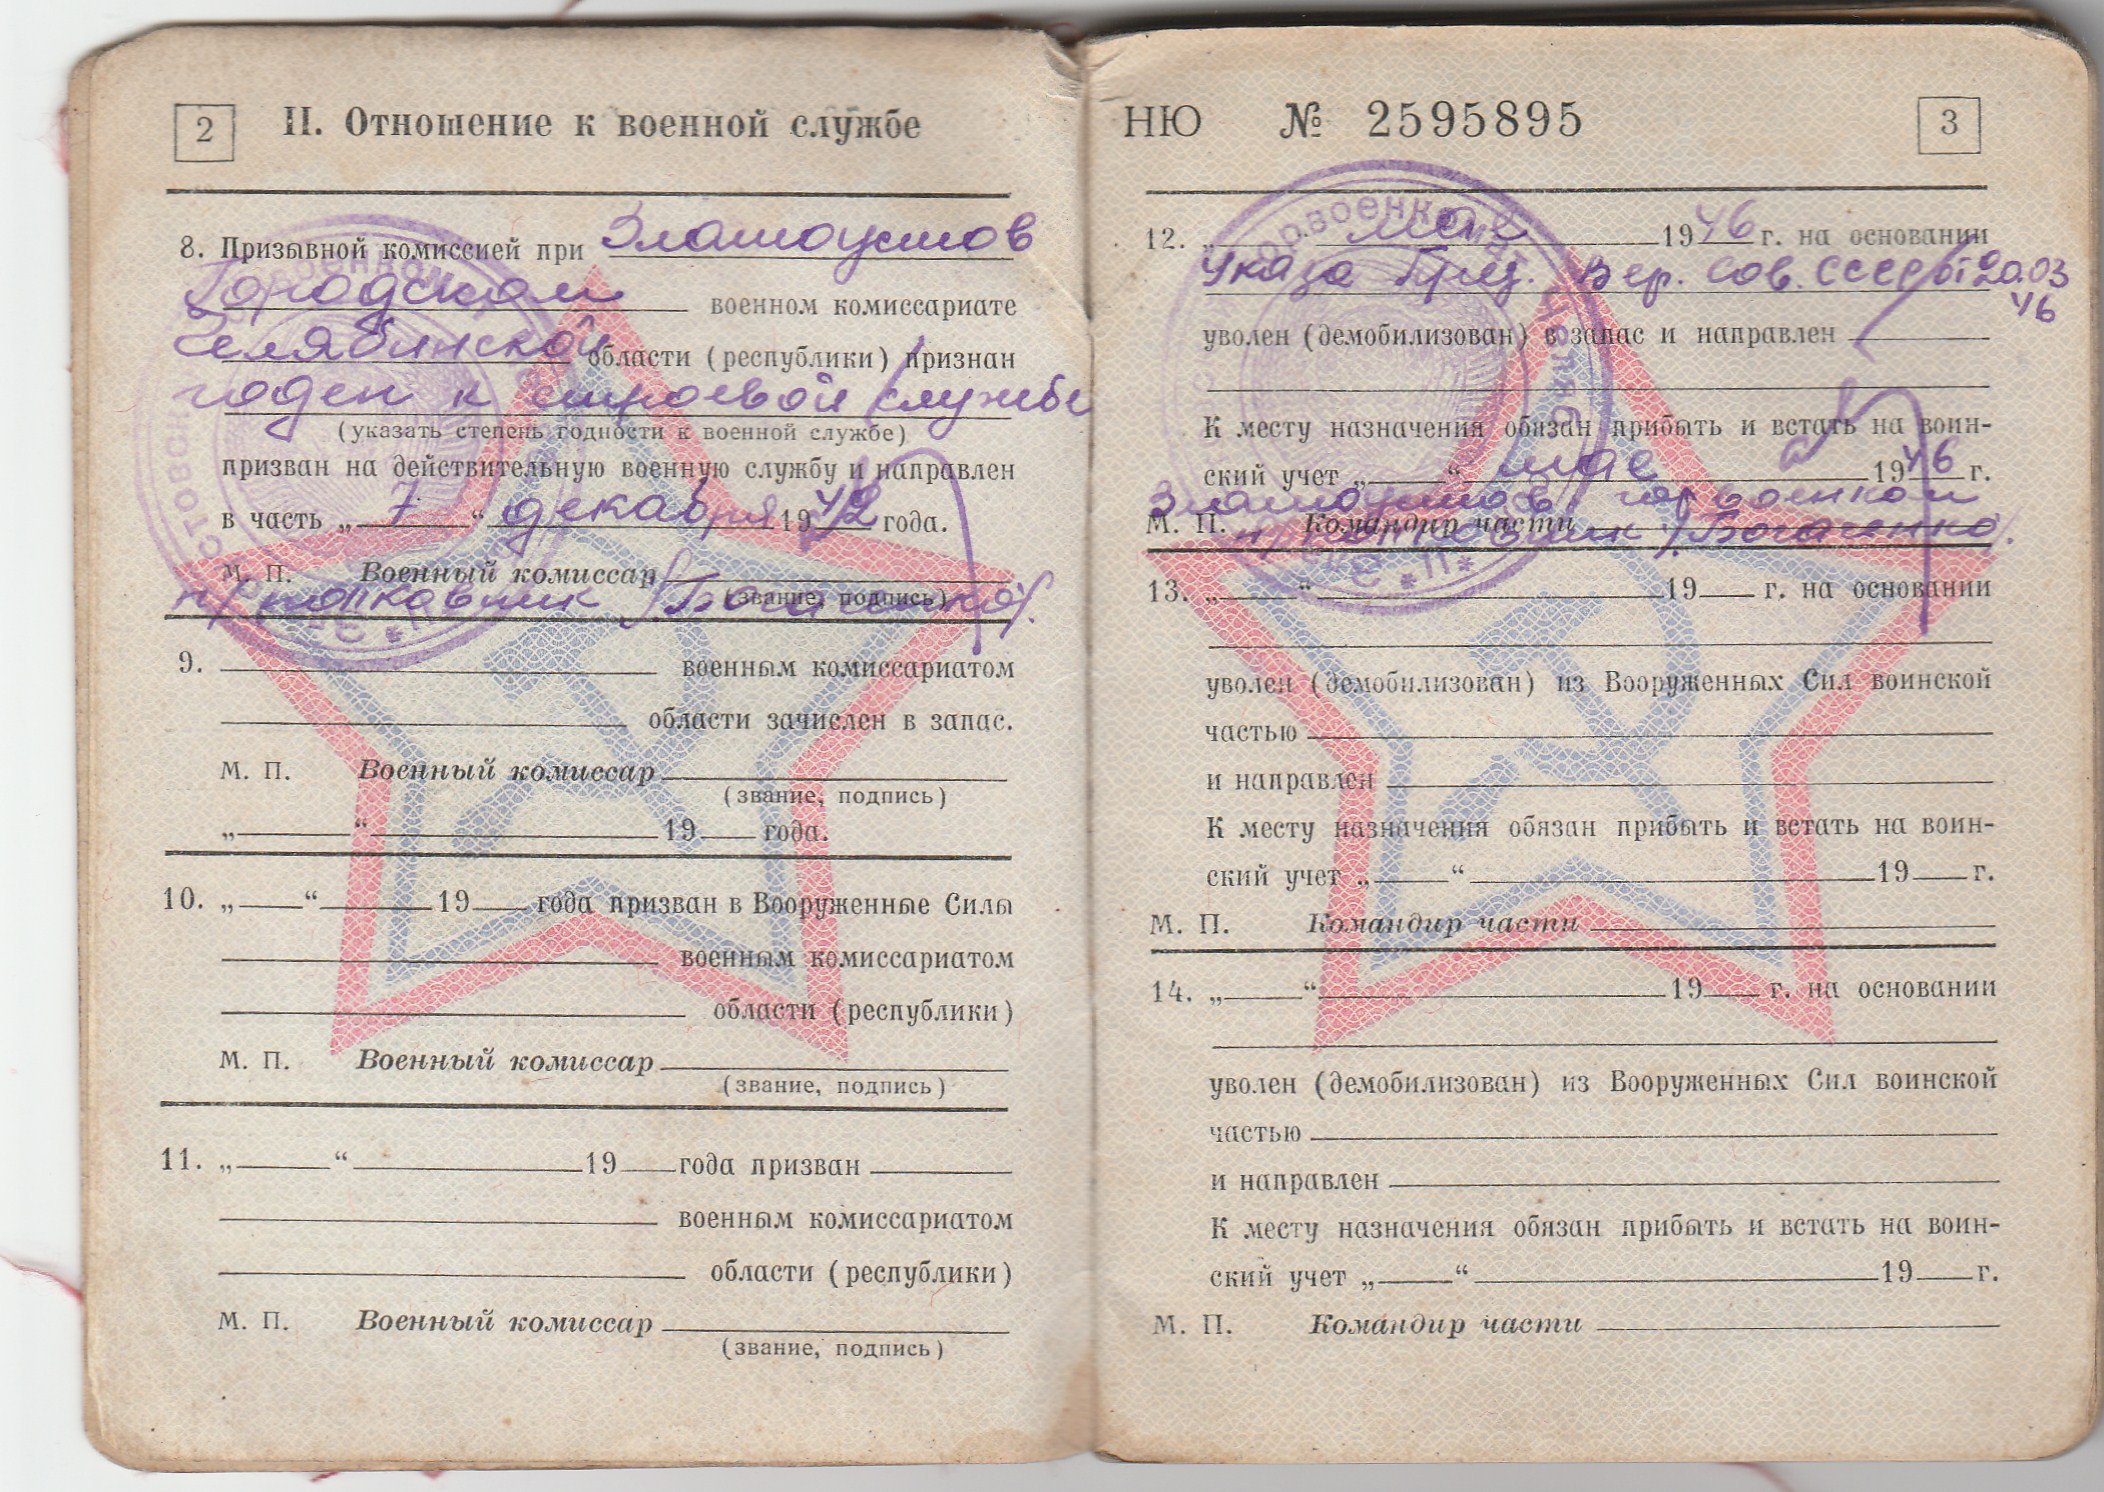 2
II. Отношение к военной службе
8. Призывной комиссией при Златоустов
Городском военном комиссариате
Челябинской области (республики) признан
годен к строевой службе
(указать степень годности к военной службе)
призван на действительную военную службу и направлен
в часть „ 7 “ декабря 1942 года.
М. П. Военный комиссар
(звание, подпись)
п/полковник /Богаченко/.
9. военным комиссариатом
области зачислен в запас.
М. П. Военный комиссар
(звание, подпись)
„ “ 19 года.
10. „ “ 19 года призван в Вооруженные Силы
военным комиссариатом
области (республики)
М. П. Военный комиссар
(звание, подпись)
11. „ “ 19 года призван
военным комиссариатом
области (республики)
М. П. Военный комиссар
(звание, подпись)
НЮ № 2595895
3
12. „ мая 1946 г. на основании
Указа През. Вер. Сов. СССР от 20.03
46
уволен (демобилизован) в запас и направлен
К месту назначения обязан прибыть и встать на воин-
ский учет „ “ мае 1946 г.
Златоустов. горвоенком
М. П. Командир части
п/полковник /Богаченко/.
13. „ “ 19 г. на основании
уволен (демобилизован) из Вооруженных Сил воинской
частью
и направлен
К месту назначения обязан прибыть и встать на воин-
ский учет „ “ 19 г.
М. П. Командир части
14. „ “ 19 г. на основании
уволен (демобилизован) из Вооруженных Сил воинской
частью
и направлен
К месту назначения обязан прибыть и встать на воин-
ский учет „ “ 19 г.
М. П. Командир части